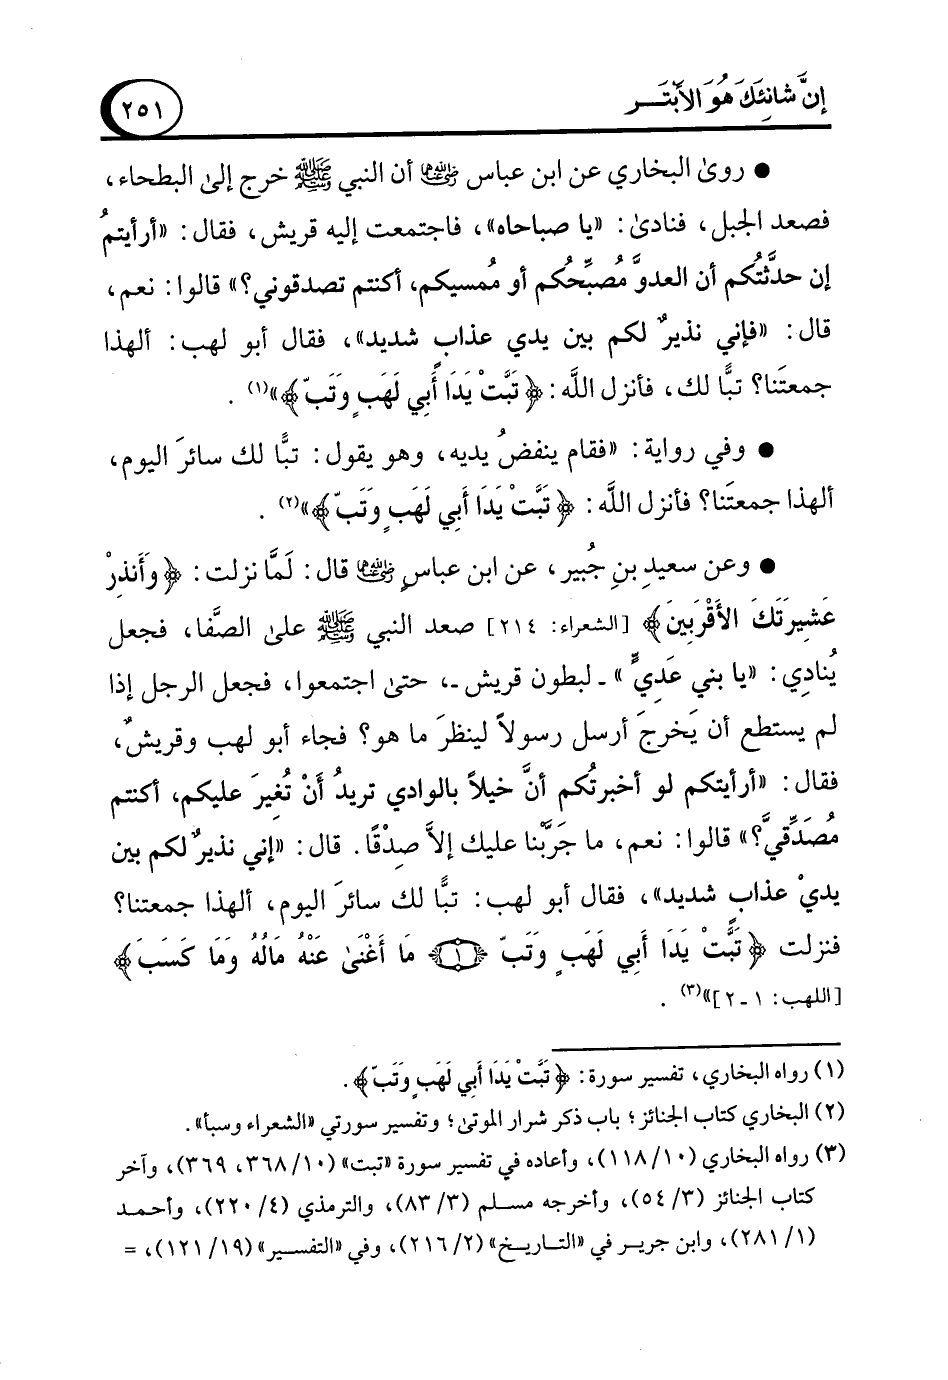 إنَّ شانِئَكَ هُوَ الأبْتَـــر
٢٥١
● روىٰ البخاري عن ابن عباس رضي الله عنهما أن النبي ﷺ خرج إلىٰ البطحاء،
فصعد الجبل، فنادىٰ: «يا صباحاه»، فاجتمعت إليه قريش، فقال: «أرأيتمُ
إن حدَّثتُكم أن العدوَّ مُصبِّحُكم أو مُمسيكم، أكنتم تصدقوني؟» قالوا: نعم،
قال: «فإني نذيرٌ لكم بين يدي عذابٍ شديد»، فقال أبو لهب: ألهذا
جمعتَنا؟ تبًّا لك، فأنزل اللَّه: ﴿تَبَّتْ يَدَا أَبِي لَهَبٍ وَتَبّ﴾»(١).
● وفي رواية: «فقام ينفضُ يديه، وهو يقول: تبًّا لك سائرَ اليوم،
ألهذا جمعتَنا؟ فأنزل اللَّه: ﴿تَبَّتْ يَدَا أَبِي لَهَبٍ وَتَبّ﴾»(٢).
● وعن سعيدِ بنِ جُبير، عن ابن عباسٍ رضي الله عنهما قال: لَمَّا نزلت: ﴿وَأَنذِرْ
عَشِيرَتَكَ الأَقْرَبِينَ﴾ [الشعراء: ٢١٤] صعد النبي ﷺ علىٰ الصَّفا، فجعل
يُنادِي: «يا بني عَدِيٍّ» ـ لبطون قريش ـ، حتىٰ اجتمعوا، فجعل الرجل إذا
لم يستطع أن يَخرجَ أرسل رسولاً لينظرَ ما هو؟ فجاء أبو لهب وقريشٌ،
فقال: «أرأيتكم لو أخبرتُكم أنَّ خيلاً بالوادي تريدُ أنْ تُغيرَ عليكم، أكنتم
مُصَدِّقيَّ؟» قالوا: نعم، ما جَرَّبْنا عليك إلاَّ صِدْقًا. قال: «إني نذيرٌ لكم بين
يديْ عذابٍ شديد»، فقال أبو لهب: تبًّا لك سائرَ اليوم، ألهذا جمعتنا؟
فنزلت ﴿تَبَّتْ يَدَا أَبِي لَهَبٍ وَتَبّ (١) مَا أَغْنَىٰ عَنْهُ مَالُهُ وَمَا كَسَبَ﴾
[اللهب: ١ ـ ٢]»(٣).
(١) رواه البخاري، تفسير سورة: ﴿تَبَّتْ يَدَا أَبِي لَهَبٍ وَتَبّ﴾.
(٢) البخاري كتاب الجنائز؛ باب ذكر شرار الموتىٰ؛ وتفسير سورتي «الشعراء وسبأ».
(٣) رواه البخاري (١١٨/١٠)، وأعاده في تفسير سورة «تبت» (٣٦٨/١٠، ٣٦٩)، وآخر
كتاب الجنائز (٥٤/٣)، وأخرجه مسلم (٨٣/٣)، والترمذي (٢٢٠/٤)، وأحمد
(٢٨١/١)، وابن جرير في «التاريخ» (٢١٦/٢)، وفي «التفسير» (١٢١/١٩)، =